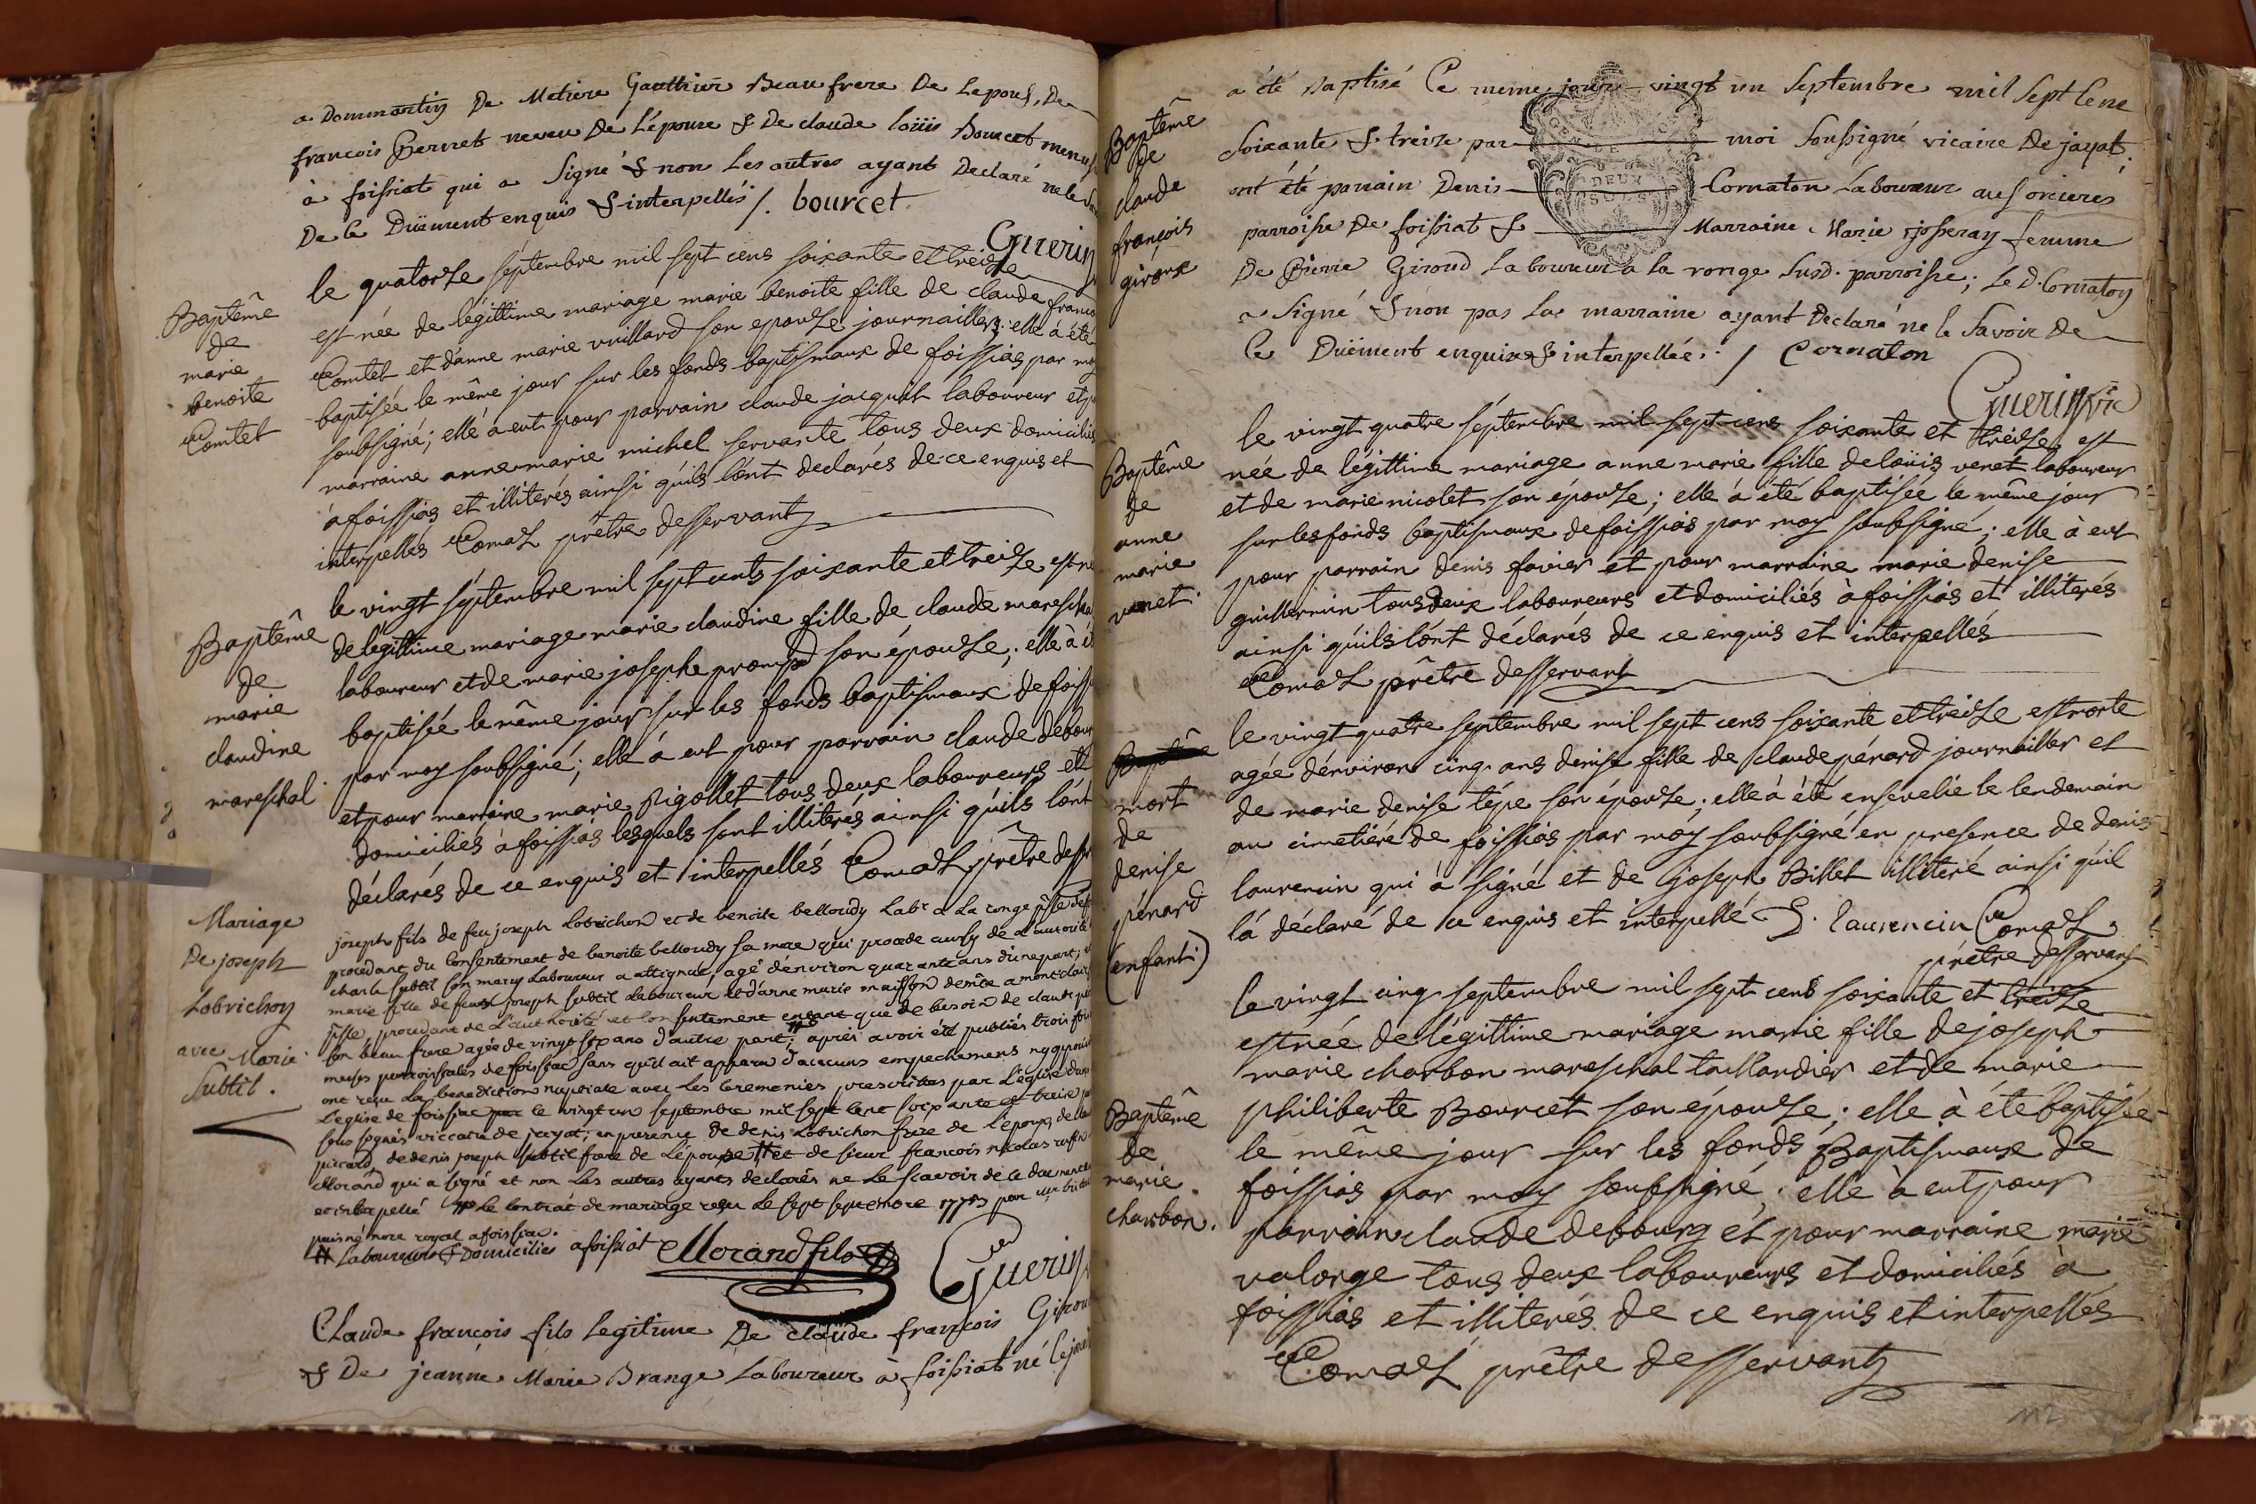 a Dommartin De Metiere Gauthier Beau frere De Lepous, De
francois Pernet neveu De L'épouse & De claude loüis Bourcet menu
à foissiat qui a signé & non Les autres ayant Declaré ne le
De ce Düement enquis & interpellés /. bourcet
Guerin
Baptême
de
marie
benoite
Comtet
le quatorze séptembre mil sept cens soixante et treidze
est née de légittime mariage marie benoite fille de claude franco
Comtet et d'anne marie vuillard son epouse journaillers. elle à été
baptisée le même jour sur les fonds baptismaux de foissias par moy
soubsigné; elle à eut pour parrain claude jacquet laboureur et p
marraine anne marie michel servante tous deux domiciliés
à foissias et illiterés ainsi qúils lónt declarés de ce enquis et
interpelles Comaz prêtre desservant
Baptême
de
marie
claudine
mareschal
le vingt séptembre mil sept cents soixante et treidze est né
de légittime mariage marie claudine fille de claude marescha
laboureur et de marie josephe promp son épousze; elle à ét
baptisée le même jour sur les fonds baptismaux de foissi
par moy soubsigné; elle à eut pour parrain claude debour
et pour marraine marie Rigollet tous deux laboureurs et
domiciliés à foissias lesquels sont illiterés ainsi qúils lónt
déclarés de ce enquis et interpellés Comaz prêtre desser
Mariage
De joseph
Lobrichon
avec Marie
Subtil.
joseph fils de feu joseph Lobrichon et de benoite belloudy Labr a La ronge
procedant du Consentement de benoite belloudy sa mere qui procede aussy de l'autorité
charle subtil son mary Laboureur a attignat, agé d'environ quarante ans d'une part, et
marie fille de feu joseph subtil laboureur et d'anne marie
procedant de L'authorité et consentement entant que de besoin de claude
son beau frere agée de vingt sept ans d'autre part; aprés avoir été publiés trois fois
messes parroissiales de foissiac sans qu'il ait apparu d'aucuns empechemens ny
ont reçu La benediction nuptiale avec Les Ceremonies prescrittes par L'église dans
L'eglise de foissiac le vingt un septembre mil sept cent soixante et treize par
sous signés viccaire de jayat; en presence de denis Lobrichon frere de L'epoux, de
picard, de denis joseph subtil frere de L'epouse # et de sieur francois nicolas
Morand qui a signé et non Les autres ayants déclarés ne Le scavoir de ce duement
et interpellé # Le Contrat de mariage reçu Le sept septembre 1773 par
puisné nore royal a foissiac.
# Laboureurs & Domicilies a foissiat Morand fils
Guerin
Claude françois fils legitime De claude françois Girou
& De jeanne Marie Brange Laboureur à foissiat né le jou
Baptême
De
claude
françois
giroux
à été baptisé Ce meme jour vingt un septembre mil sept Cent
soixante & treize par moi soussigné vicaire De jayat.
ont été parrain Denis Cornaton Laboureur aus orcieres
parroisse De foissiat & Marraine Marie josseray femme
De Pierre Giroud Laboureur a la ronge susd. parroisse; Le D. Cornaton
a signé & non pas La marraine ayant Declaré ne le savoir De
Ce Düëment enquise & interpellée. / Cornaton
GENE DE
DEUX
SOLS
Guerin vic
Baptême
de
anne
marie
venet.
le vingt quatre séptembre mil sept cens soixante et treidze est
née de légittime mariage anne marie fille de loüis venet laboureur
et de marie nicolet son épousze; elle à été baptisée le même jour
sur les fonds baptismaux de foissias par moy soubsigné; elle à eut
pour parrain denis favier et pour marraine marie denise
guillermin tous deux laboureurs et domiciliés à foissias et illiterés
ainsi qúils lónt déclarés de ce enquis et interpellés
Comaz prêtre desservant
mort
de
denise
pénard
(enfant)
le vingt quatre septembre mil sept cens soixante et treidze est morte
agée dénviron cinq ans denise fille de claude pénard journailler et
de marie denise tépe son épousze; elle à été ensevelie le lendemain
au cimetiére de foissias par moy soubsigné en presence de denis
laurencin qui à signé et de joseph Billet illiteré ainsi qúil
lá déclaré de ce enquis et interpellé D. laurencin Comaz
prêtre desservant
Baptême
de
marie
charbon.
le vingt cinq septembre mil sept cens soixante et treidze
est née de légittime mariage marie fille de joseph
marie charbon mareschal taillandier et de marie
philiberte Bourcet son épousze; elle à été baptisée
le même jour sur les fonds Baptismaux de
foissias par moy soubsigné. elle à eut pour
parrain claude debourg et pour marraine marie
valorge tous deux laboureurs et domiciliés à
foissias et illiterés de ce enquis et interpellés
Comaz prêtre desservant
112